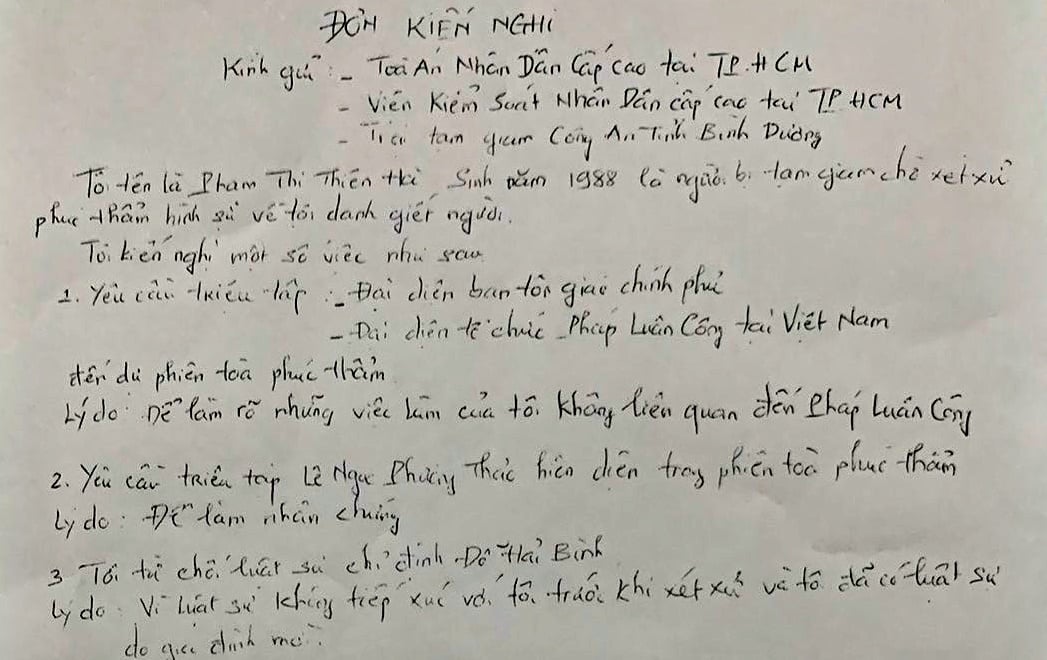 ĐƠN KIẾN NGHỊ
Kính gửi: - Toà Án Nhân Dân Cấp cao tại TP. HCM
- Viện Kiểm Soát Nhân Dân cấp cao tại TP HCM
- Trại tạm giam Công An Tỉnh Bình Dương
Tôi tên là Phạm Thị Thiên Hà Sinh năm 1988 là người bị tạm giam chờ xét xử
phúc thẩm hình sự về tội danh giết người.
Tôi kiến nghị một số việc như sau
1. Yêu cầu triệu tập: - Đại diện ban tôn giáo chính phủ
- Đại diện tổ chức Pháp Luân Công tại Việt Nam
đến dự phiên toà phúc thẩm
Lý do: Để làm rõ những việc làm của tôi không liên quan đến Pháp Luân Công
2. Yêu cầu triệu tập Lê Ngọc Phương Thảo hiện diện trong phiên toà phúc thẩm
Lý do: Để làm nhân chứng
3 Tôi từ chối luật sư chỉ định Đỗ Hải Bình
Lý do: Vì luật sư không tiếp xúc với tôi trước khi xét xử và tôi đã có luật sư
do gia đình mời.